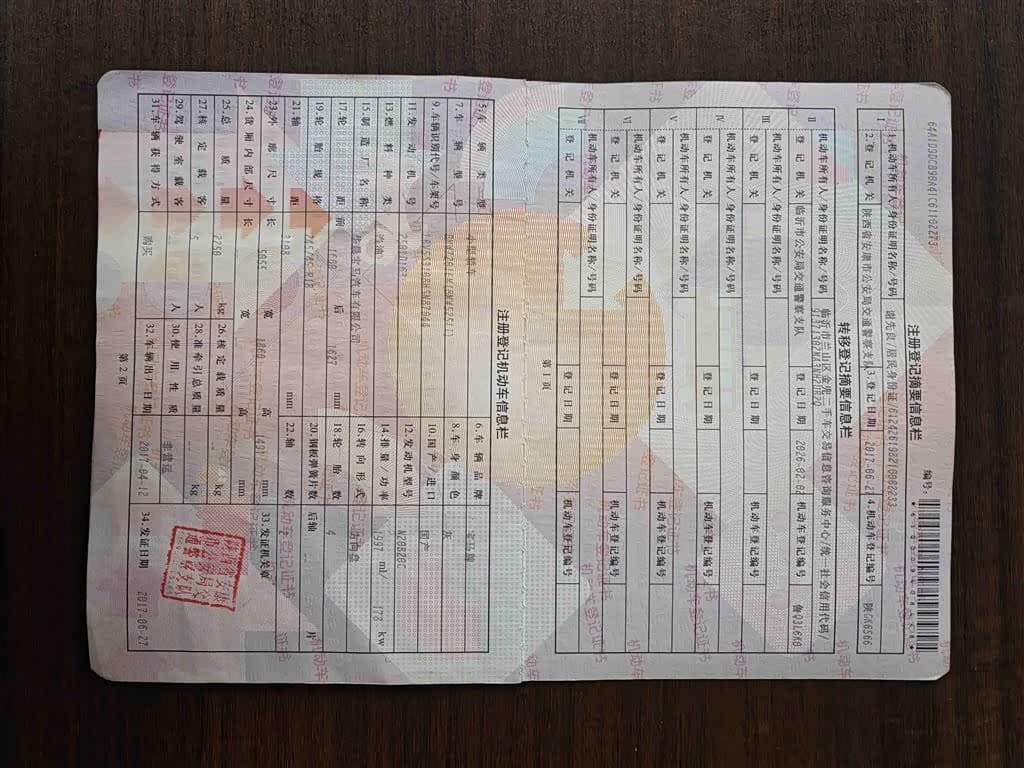 注册登记摘要信息栏
编号:
Ⅰ
1.机动车所有人/身份证明名称/号码 谢先良/居民身份证/
2.登记机关 陕西省安康市公安局交通警察支队 3.登记日期 2017-06-27 4.机动车登记编号 陕GK6566
转移登记摘要信息栏
Ⅱ
机动车所有人/身份证明名称/号码 临沂市兰山区金兜二手车交易信息咨询服务中心/统一社会信用代码/
登记机关 临沂市公安局交通警察支队 登记日期 2026-02-02 机动车登记编号 鲁Q31666
Ⅲ
机动车所有人/身份证明名称/号码
登记机关 登记日期 机动车登记编号
Ⅳ
机动车所有人/身份证明名称/号码
登记机关 登记日期 机动车登记编号
Ⅴ
机动车所有人/身份证明名称/号码
登记机关 登记日期 机动车登记编号
Ⅵ
机动车所有人/身份证明名称/号码
登记机关 登记日期 机动车登记编号
Ⅶ
机动车所有人/身份证明名称/号码
登记机关 登记日期 机动车登记编号
第1页
注册登记机动车信息栏
5.车辆类型 小型轿车 6.车辆品牌 宝马牌
7.车辆型号 8.车身颜色 灰
9.车辆识别代号/车架号 10.国产/进口 国产
11.发动机号 12.发动机型号 N20B20C
13.燃料种类 汽油 14.排量/功率 1997 ml/ kw
15.制造厂名称 华晨宝马汽车有限公司 16.转向形式 方向盘
17.轮距 前 1600 后 1627 mm 18.轮胎数 4
19.轮胎规格 20.钢板弹簧片数 后轴 片
21.轴距 3108 mm 22.轴数
23.外廓尺寸 长 5055 宽 1860 高 1491 mm 33.发证机关章
24.货厢内部尺寸 长 宽 高 mm
25.总质量 kg 26.核定载质量 kg
27.核定载客 5 人 28.准牵引总质量 kg
29.驾驶室载客 人 30.使用性质 非营运
31.车辆获得方式 购买 32.车辆出厂日期 2017-04-12 34.发证日期 2017-06-27
第2页